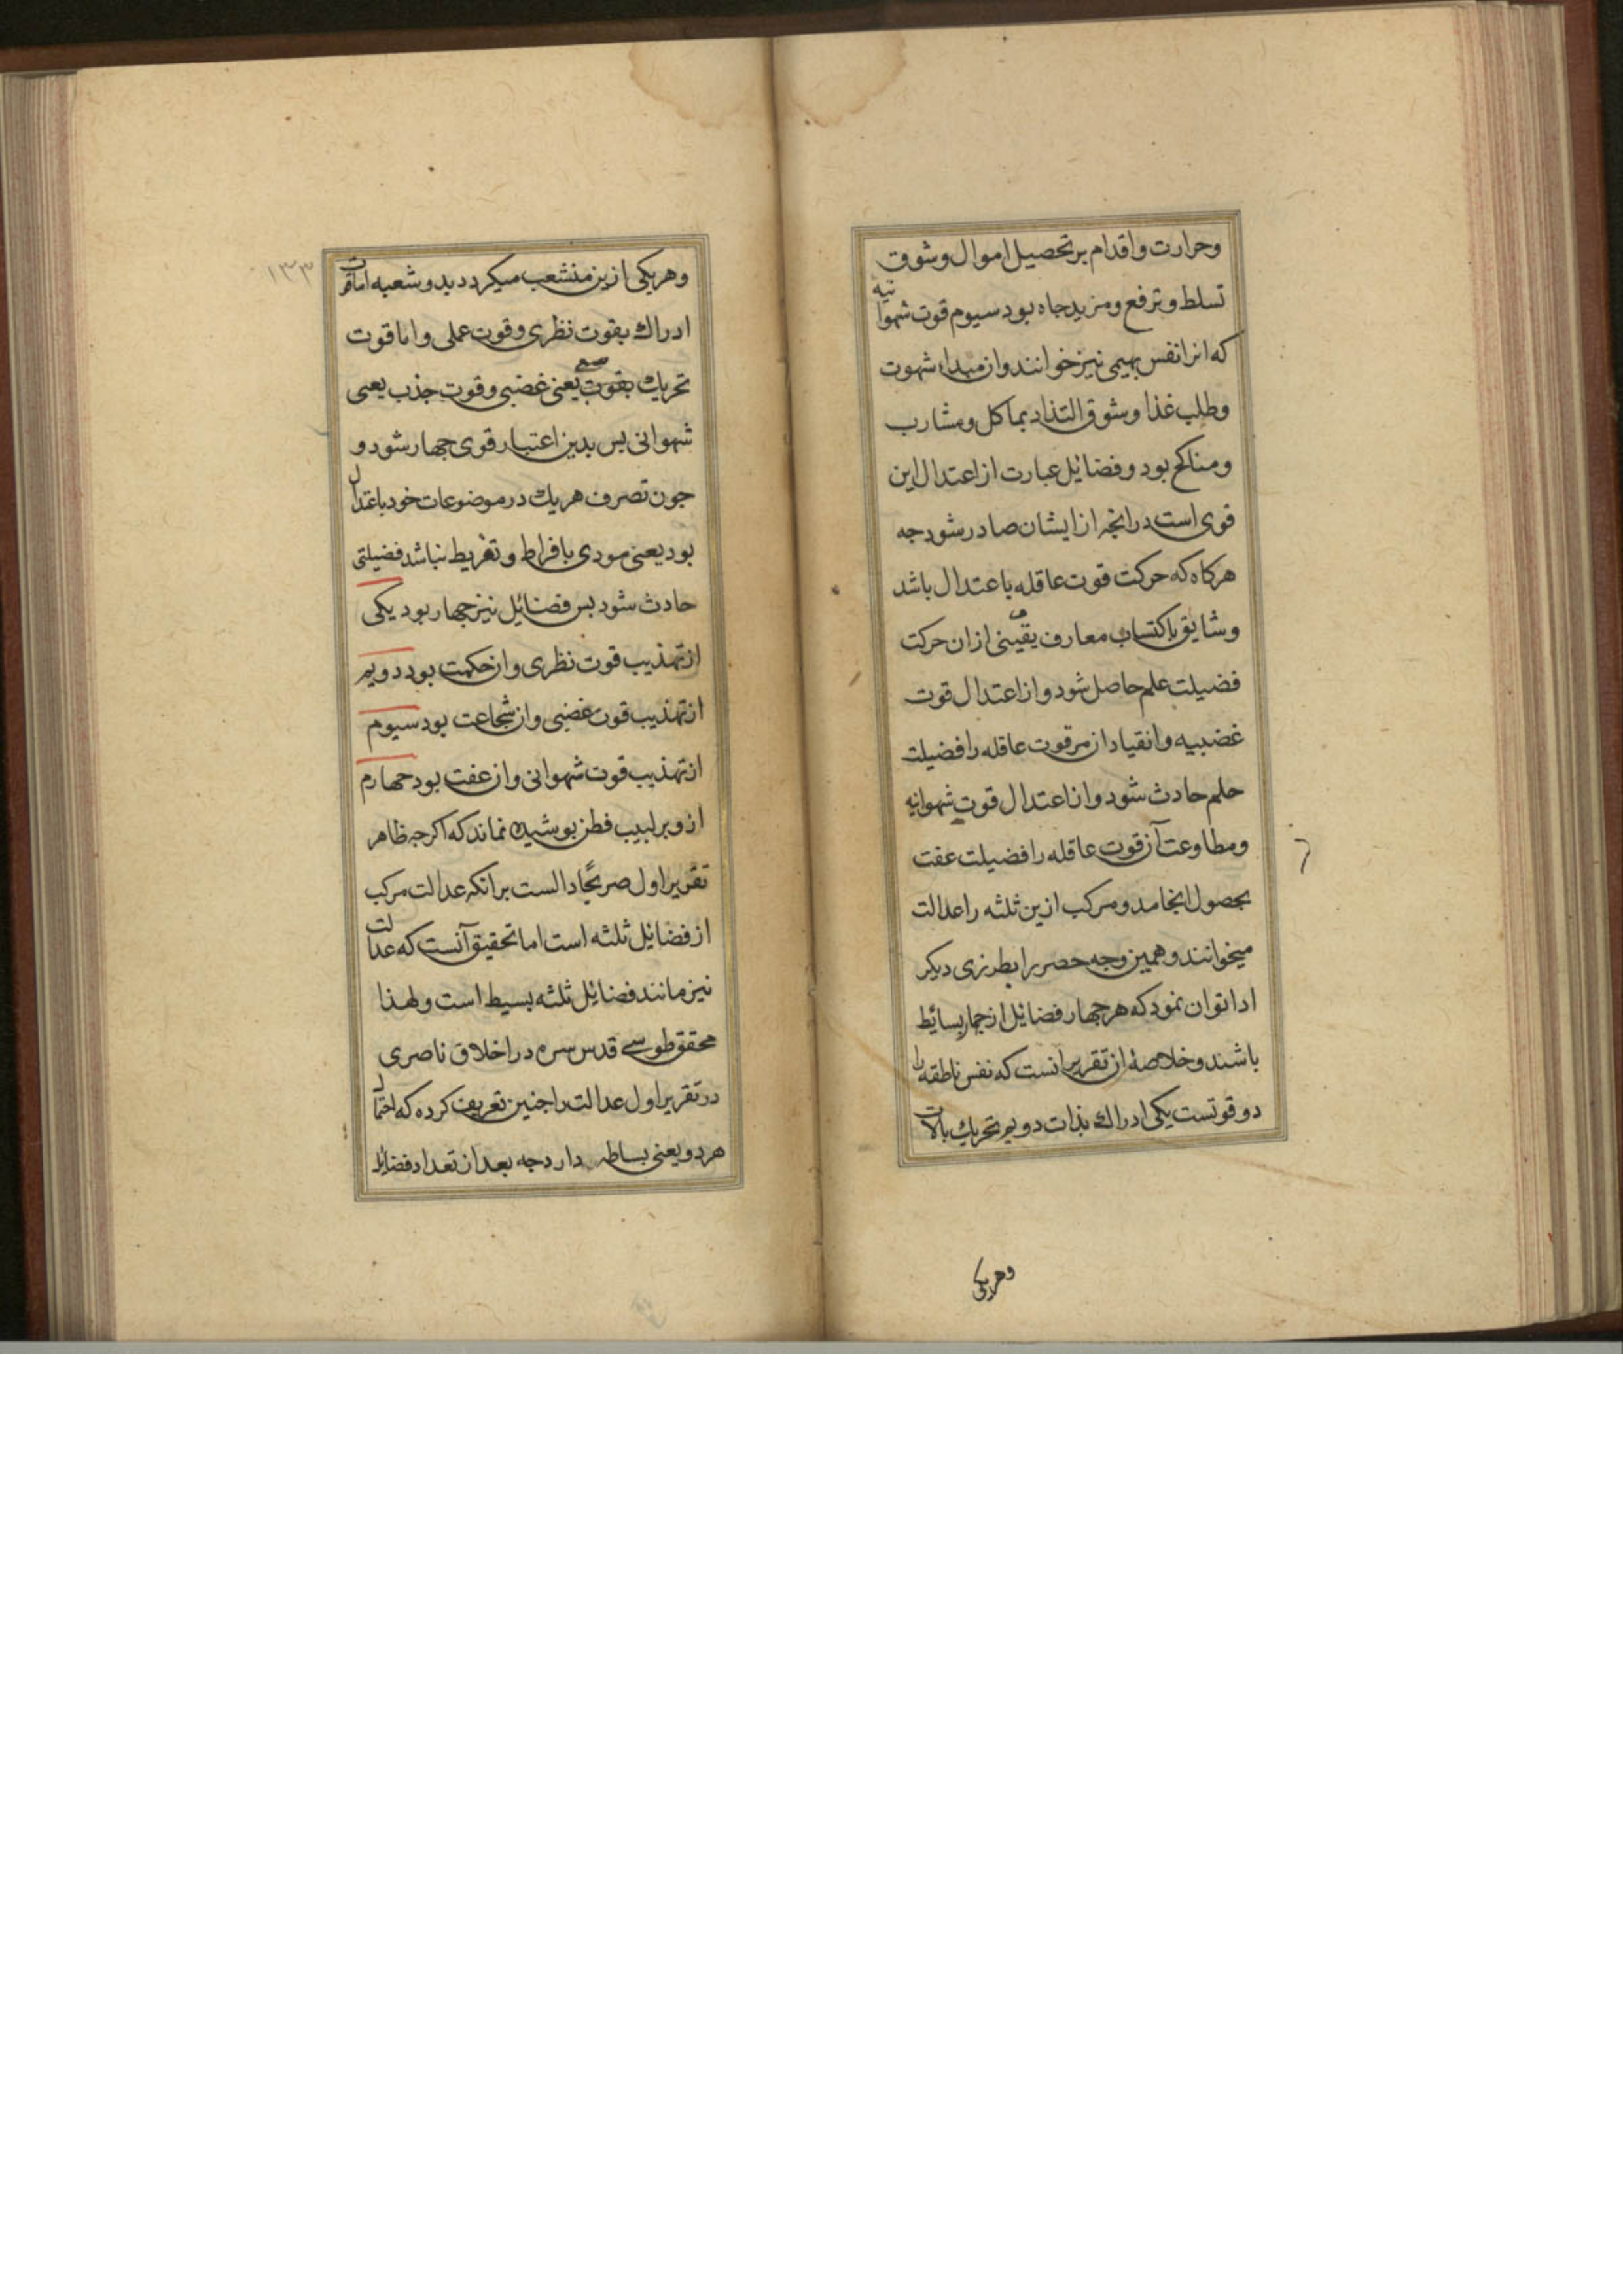 وحرارت واقدام بر تحصیل اموال وشوق
تسلط وترفع ومزید جاه بود سیوم قوت شهوانیه
که انرا نفس بهیمی نیز خوانند وان مبداء شهوت
وطلب غذا وشوق التذاذ بماکل ومشارب
ومناکح بود وفضائل عبارت از اعتدال این
قوی است در انچه از ایشان صادر شود چه
هرکاه که حرکت قوت عاقله باعتدال باشد
وشایق باکتساب معارف یقینی ازان حرکت
فضیلت علم حاصل شود واز اعتدال قوت
غضبیه وانقیاد از مر قوت عاقله را فضیلت
حلم حادث شود واز اعتدال قوت شهوانیه
ومطاوعت آن قوت عاقله را فضیلت عفت
بحصول انجامد ومرکب ازین ثلثه را عدالت
میخوانند وهمین وجه حصر را بطرزی دیکر
ادا توان نمود که هر چهار فضائل از جمله بسائط
باشند وخلاصهٔ ان تقریر انست که نفس ناطقه را
دو قوتست یکی ادراك بذات دویم تحریك بالات
وهریکی
۱۳۳
وهریکی ازین منشعب میکردد بدو شعبه اما قوت
ادراك بقوت نظری وقوت عملی واما قوت
تحریك بقوت یعنی غضبی وقوت جذب یعنی
شهوانی پس بدین اعتبار قوی چهار شود و
چون تصرف هریك در موضوعات خود باعتدال
بود یعنی مودی بافراط وتفریط نباشد فضیلتی
حادث شود پس فضائل نیز چهار بود یکی
از تهذیب قوت نظری وان حکمت بود دویم
از تهذیب قوت غضبی وان شجاعت بود سیوم
از تهذیب قوت شهوانی وان عفت بود چهارم
ازو بر لبیب فطن پوشیده نماند که اکرچه ظاهر
تقریر اول صریحًا دالست بر انکه عدالت مرکب
از فضائل ثلثه است اما تحقیق آنست که عدالت
نیز مانند فضائل ثلثه بسیط است ولهذا
محقق طوسی قدس سره در اخلاق ناصری
در تقریر اول عدالت را چنین تعریف کرده که احتمال
هر دو یعنی بساطه دارد چه بعد از تعداد فضائل